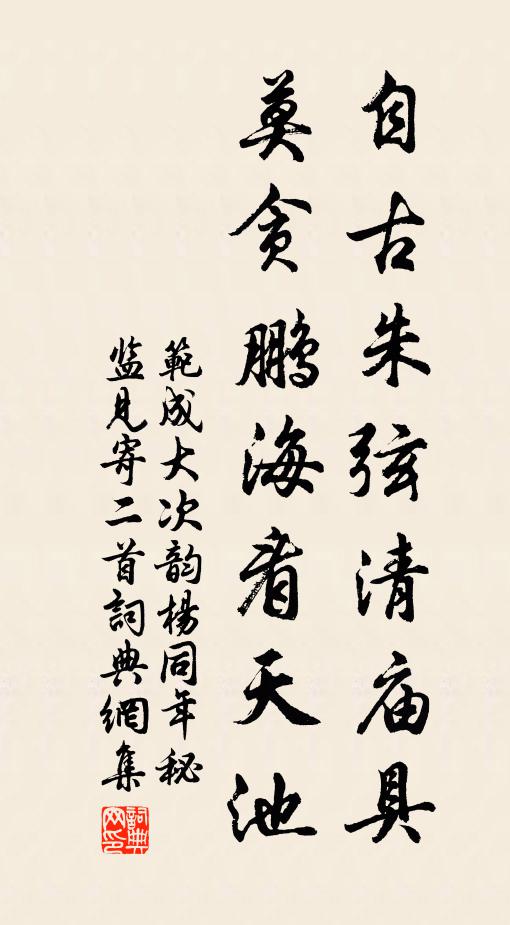 自古朱弦清庙具
莫贪鹏海看天池
範成大次韵楊同年秘
监見寄二首詞典網集
詞典網印